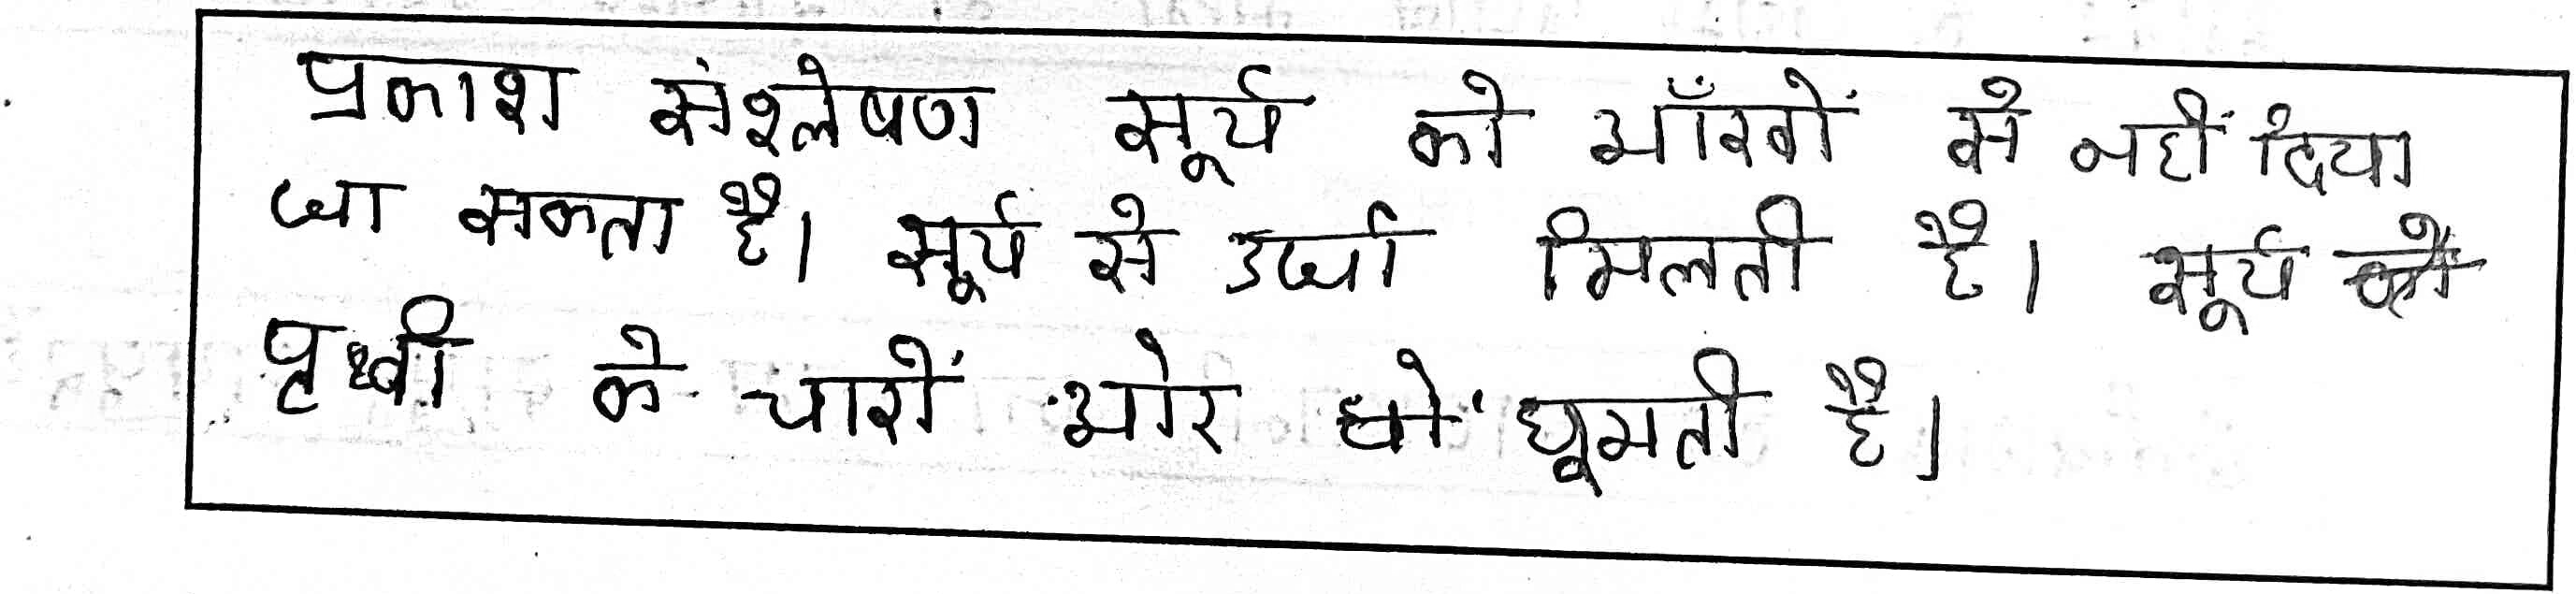 प्रकाश संश्लेषण सूर्य को आँखों से नहीं दिया
जा सकता है। सूर्य से उर्जा मिलती है। सूर्य
पृथ्वी के चारों ओर घूमती है।